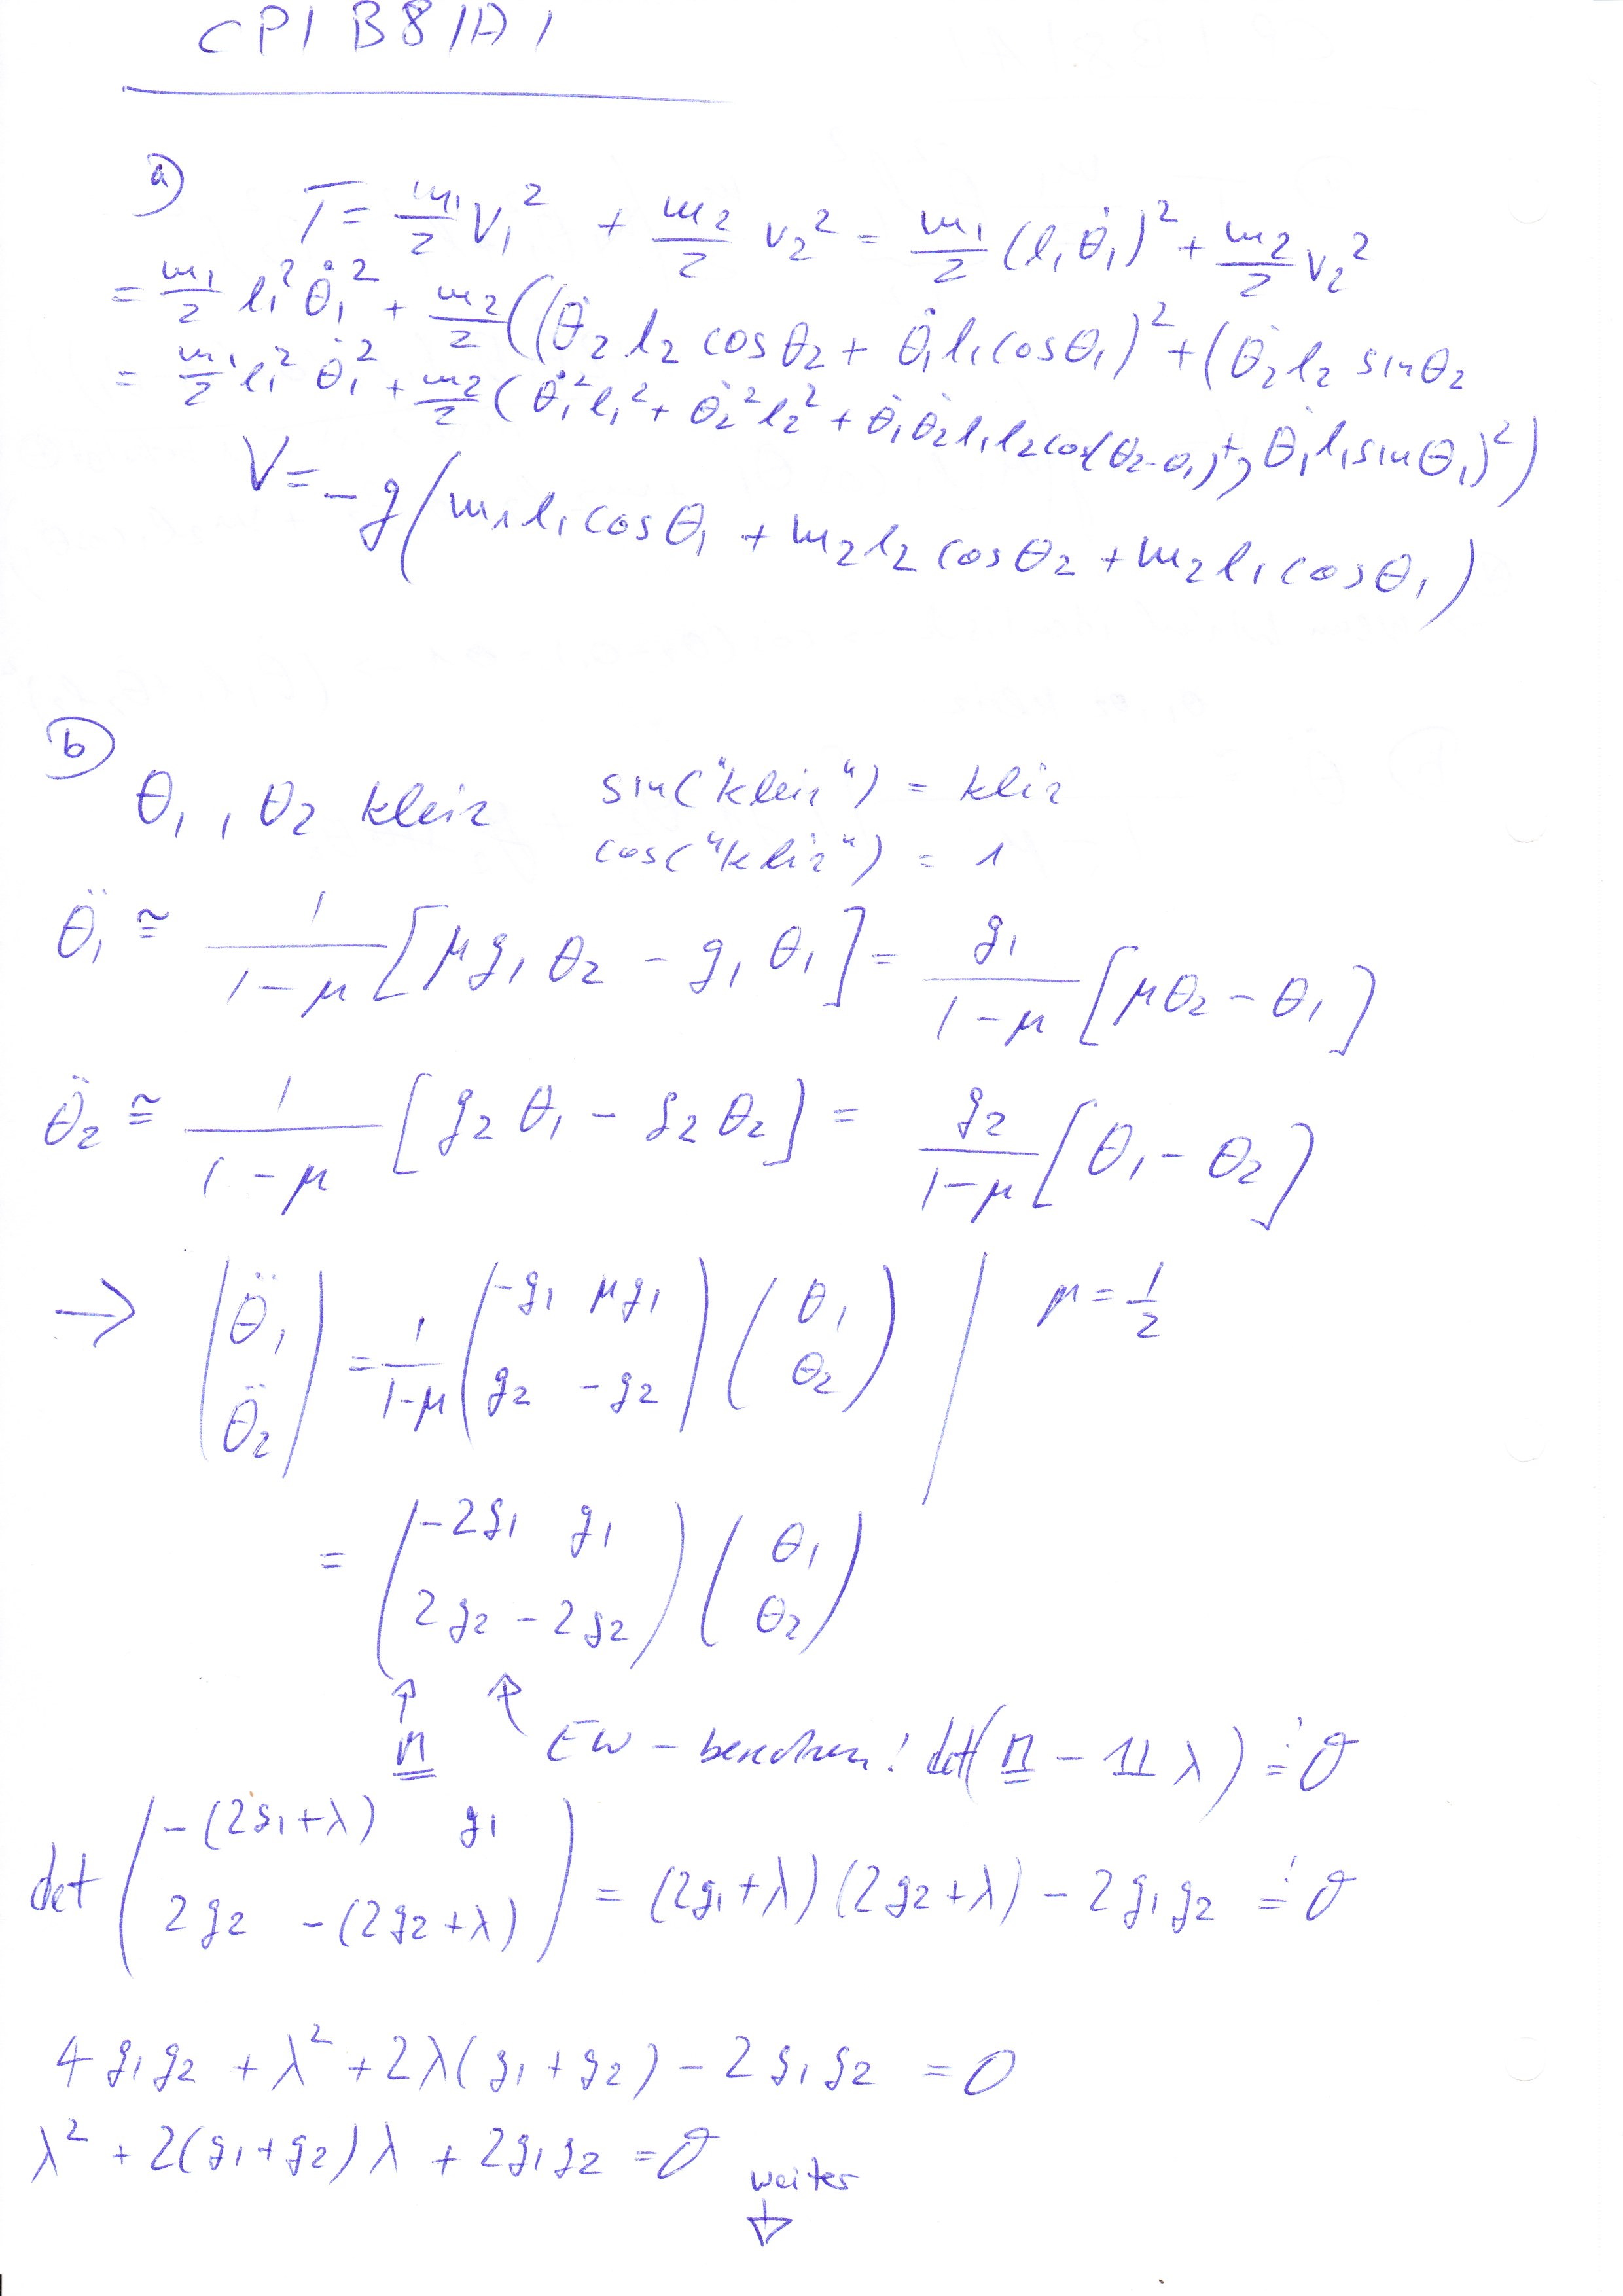 CP1 B8/A1
a) T = m₁/2 v₁² + m₂/2 v₂² = m₁/2 (l₁θ̇₁)² + m₂/2 v₂²
= m₁/2 l₁² θ̇₁² + m₂/2 ((θ̇₂ l₂ cosθ₂ + θ̇₁l₁cosθ₁)² + (θ̇₂l₂ sinθ₂
+ θ̇₁l₁sinθ₁)²)
= m₁/2 l₁² θ̇₁² + m₂/2 (θ̇₁²l₁² + θ̇₂²l₂² + θ̇₁θ̇₂l₁l₂cos(θ₂-θ₁)
V = -g(m₁l₁cosθ₁ + m₂l₂cosθ₂ + m₂l₁cosθ₁)
b) θ₁, θ₂ klein sin("klein") = klein
cos("klein") = 1
θ̈₁ ≅ 1/(1-μ) [μg₁θ₂ - g₁θ₁] = g₁/(1-μ) [μθ₂ - θ₁]
θ̈₂ ≅ 1/(1-μ) [g₂θ₁ - g₂θ₂] = g₂/(1-μ) [θ₁ - θ₂]
→ (θ̈₁ θ̈₂) = 1/(1-μ) (-g₁ μg₁ g₂ -g₂) (θ₁ θ₂) | μ = 1/2
= (-2g₁ g₁ 2g₂ -2g₂) (θ₁ θ₂)
↑ ↑
EW - berechnen! det( - 𝟙λ) =! 0
det (-(2g₁+λ) g₁ 2g₂ -(2g₂+λ)) = (2g₁+λ)(2g₂+λ) - 2g₁g₂ =! 0
4g₁g₂ + λ² + 2λ(g₁+g₂) - 2g₁g₂ = 0
λ² + 2(g₁+g₂)λ + 2g₁g₂ = 0
weiter
↓